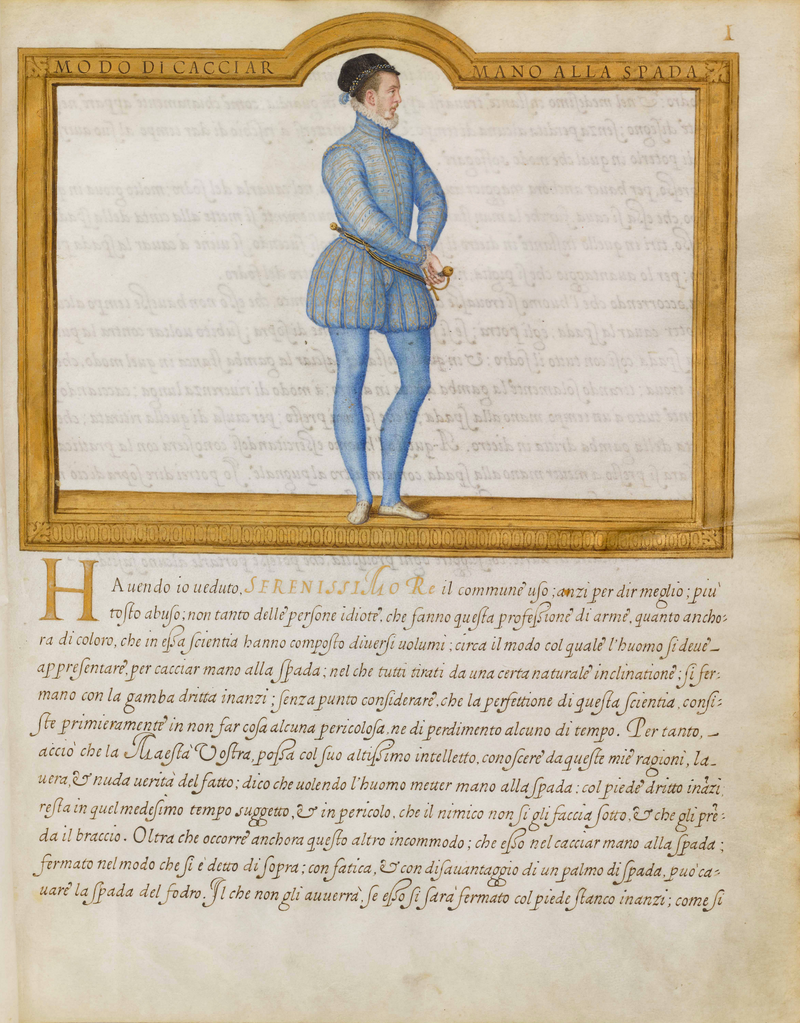 1
MODO DI CACCIAR MANO ALLA SPADA
HAuendo io ueduto, SERENISSIMO Re il commune uso; anzi per dir meglio; piu'
tosto abuso; non tanto delle persone idiote, che fanno questa professione di arme, quanto ancho:
ra di coloro, che in essa scientia hanno composto diuersi uolumi; circa il modo col quale l'huomo si deue
appresentare, per cacciar mano alla spada; nel che tutti tirati da una certa naturale inclinatione; si fer:
mano con la gamba dritta inanzi; senza punto considerare, che la perfettione di questa scientia, consi:
ste primieramente in non far cosa alcuna pericolosa, ne di perdimento alcuno di tempo. Per tanto,
acciò che la Maestà Vostra, possa col suo altissimo intelletto, conoscere da queste mie ragioni, la
uera, & nuda uerità del fatto; dico che uolendo l'huomo metter mano alla spada; col piede dritto ināzi,
resta in quel medesimo tempo suggetto, & in pericolo, che il nimico non si gli faccia sotto, & che gli prē:
da il braccio. Oltra che occorre anchora questo altro incommodo; che esso nel cacciar mano alla spada;
fermato nel modo che si è detto di sopra; con fatica, & con disauantaggio di un palmo di spada, può ca:
uare la spada del fodro. Il che non gli auuerrà, se esso si sarà fermato col piede stanco inanzi; come si